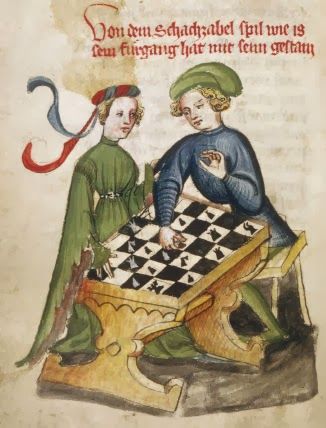 Von dem Schachzabel spil wie is
sein fürgang hat mit seiin gestain